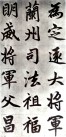 為定遠大將軍
蘭州司法祖福
明威將軍父昌